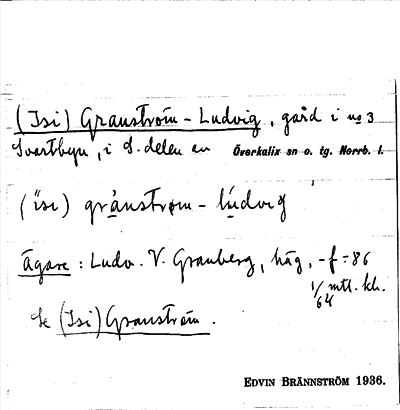 (Isi) Granström - Ludvig, gård i nº 3
Svartbyn, i S. delen av Överkalix sn o. tg. Norrb. l.
(ïsi) grànstrøm - lúdvig
Ägare: Ludv. V. Granberg, häg, -f-86
1/64 mtl. kh.
Se (Isi) Granström.
EDVIN BRÄNNSTRÖM 1936.